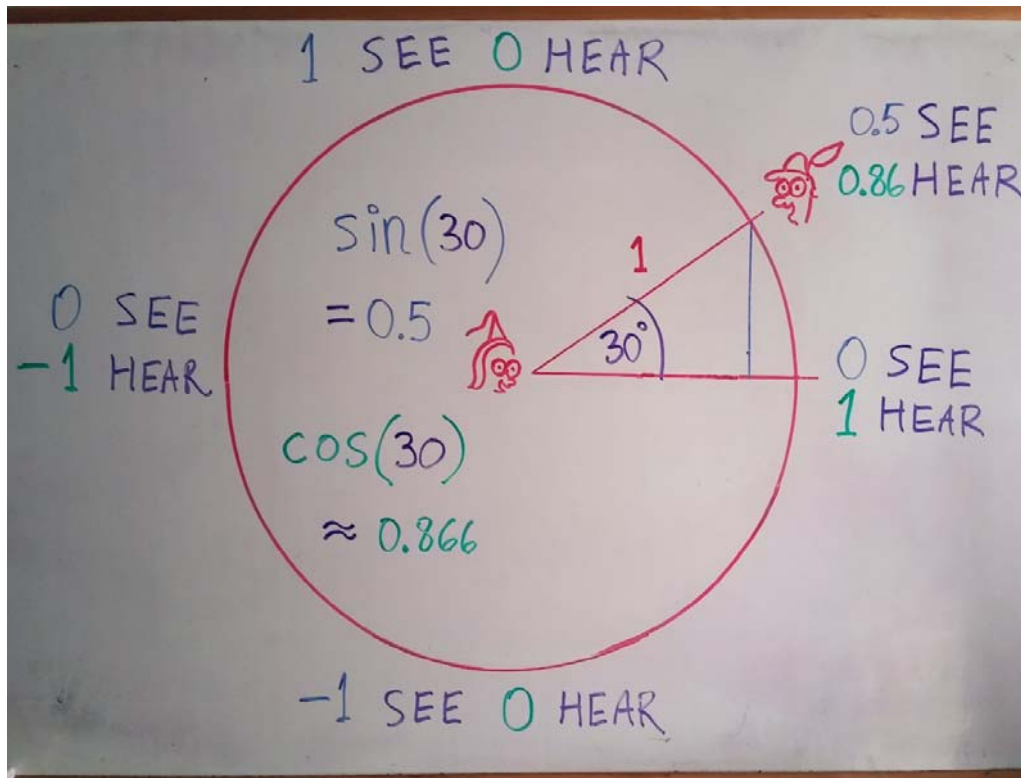 1 SEE 0 HEAR
0.5 SEE
0.86 HEAR
sin(30)
= 0.5
1
30°
0 SEE
-1 HEAR
0 SEE
1 HEAR
cos(30)
≈ 0.866
-1 SEE 0 HEAR